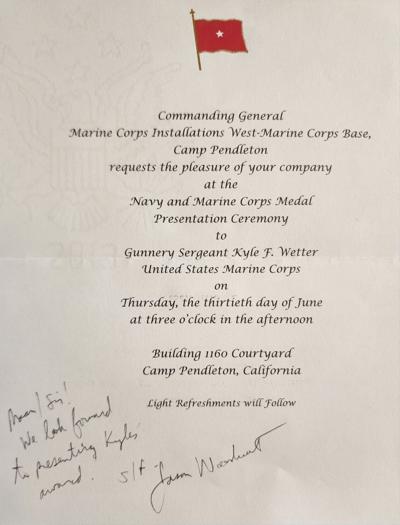 Commanding General
Marine Corps Installations West-Marine Corps Base,
Camp Pendleton
requests the pleasure of your company
at the
Navy and Marine Corps Medal
Presentation Ceremony
to
Gunnery Sergeant Kyle F. Wetter
United States Marine Corps
on
Thursday, the thirtieth day of June
at three o'clock in the afternoon
Building 1160 Courtyard
Camp Pendleton, California
Light Refreshments will Follow
We look forward
to presenting Kyles'
award.
S/F Jason